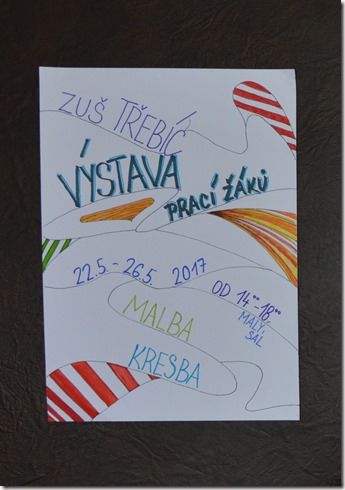 ZUŠ TŘEBÍČ
VÝSTAVA
PRACÍ ŽÁKŮ
22.5. - 26.5. 2017
OD 14°° - 18°°
MALÝ
SÁL
MALBA
KRESBA